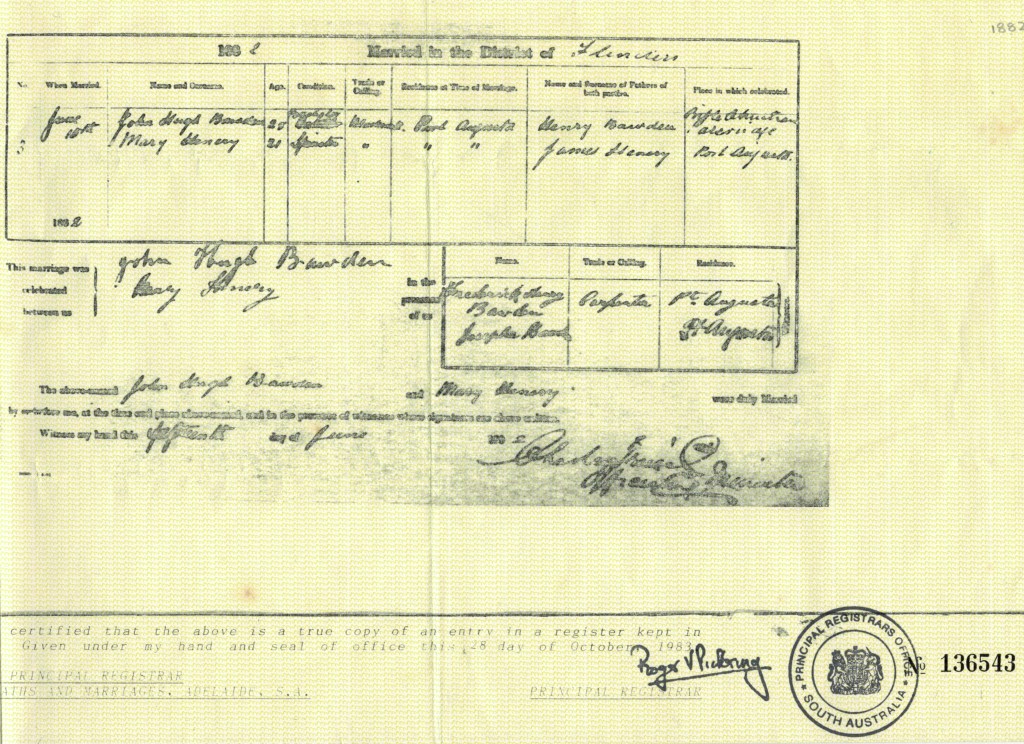 1882
1882 Married in the District of Flinders
No. When Married. Name and Surname. Age. Condition. Trade or Calling. Residence at Time of Marriage. Name and Surname of Fathers of both parties. Place in which celebrated.
June John Hugh Bawden Port Augusta Henry Bawden
15th Mary Henery 21 Spinster " " " James Henery Port Augusta.
3
1882
This marriage was celebrated between us
John Hugh Bawden
Mary Henery
In the presence of us
Name. Trade or Calling. Residence.
Frederick Henry Bawden Carpenter Pt. Augusta
Pt Augusta
Witnesses
The above-named John Hugh Bawden and Mary Henery were duly Married
by or before me, at the time and place above-named, and in the presence of witnesses whose signatures are above written.
Witness my hand this fifteenth day of June 1882
Officiating Minister
certified that the above is a true copy of an entry in a register kept in
Given under my hand and seal of office this 28 day of October 1983
PRINCIPAL REGISTRAR
ATHS AND MARRIAGES, ADELAIDE, S.A.
Roger V Pickering
PRINCIPAL REGISTRAR
PRINCIPAL REGISTRARS OFFICE
SOUTH AUSTRALIA
No 136543